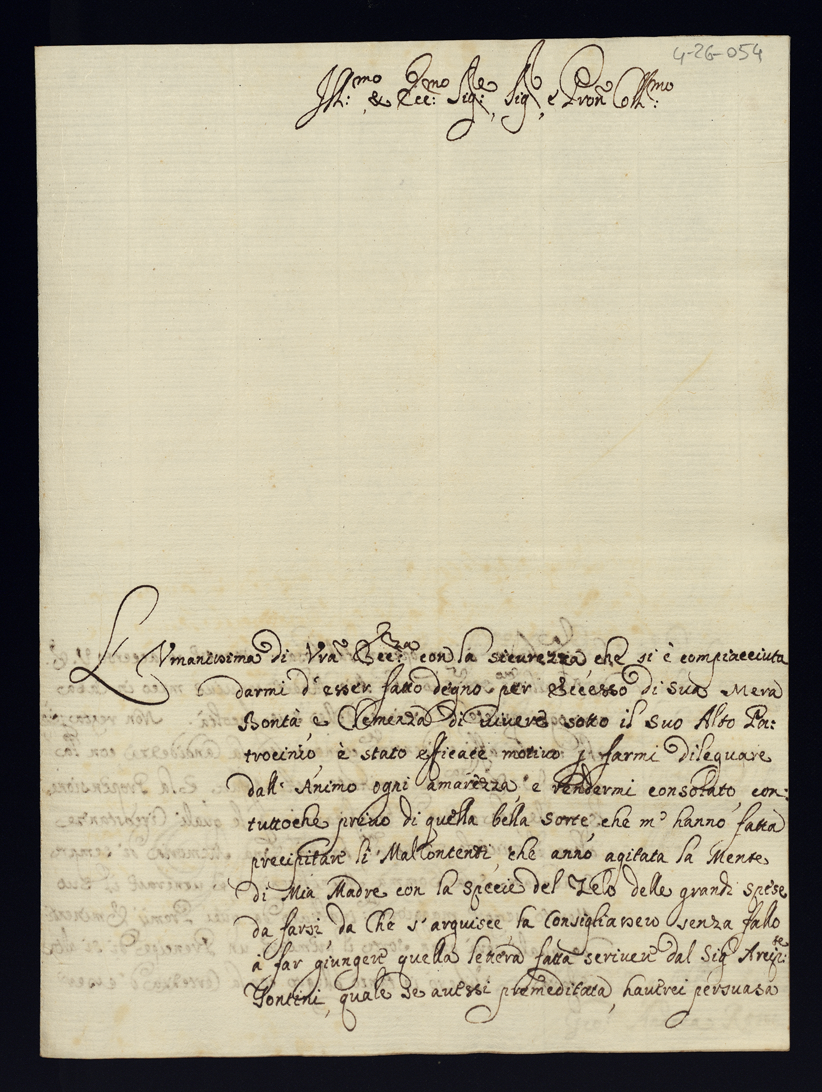 4-26-054
Ill:mo & Ecc:mo Sig:re, Sig:re, e Pron Coll:mo
L'Vmanissima di Vra Ecc:za con la sicurezza che si è compiacciuta
darmi d'esser fatto degno per Eccesso di sua Mera
Bontà e Clemenza di viuere sotto il suo Alto Pa:
trocinio, è stato efficace motiuo p farmi dileguare
dall'Animo ogni amarezza e rendermi consolato con:
tuttoche priuo di quella bella sorte che m'hanno fatta
precipitare li Malcontenti, che anno agitata la Mente
di Mia Madre con la specie del Zelo delle grandi spese
da farsi, da che s'arguisce la Consigliassero senza fallo
à far giungere quella lettera fatta scriuere dal Sig. Arcip:te
Fontini, quale se auessi premeditata, hauerei persuasa